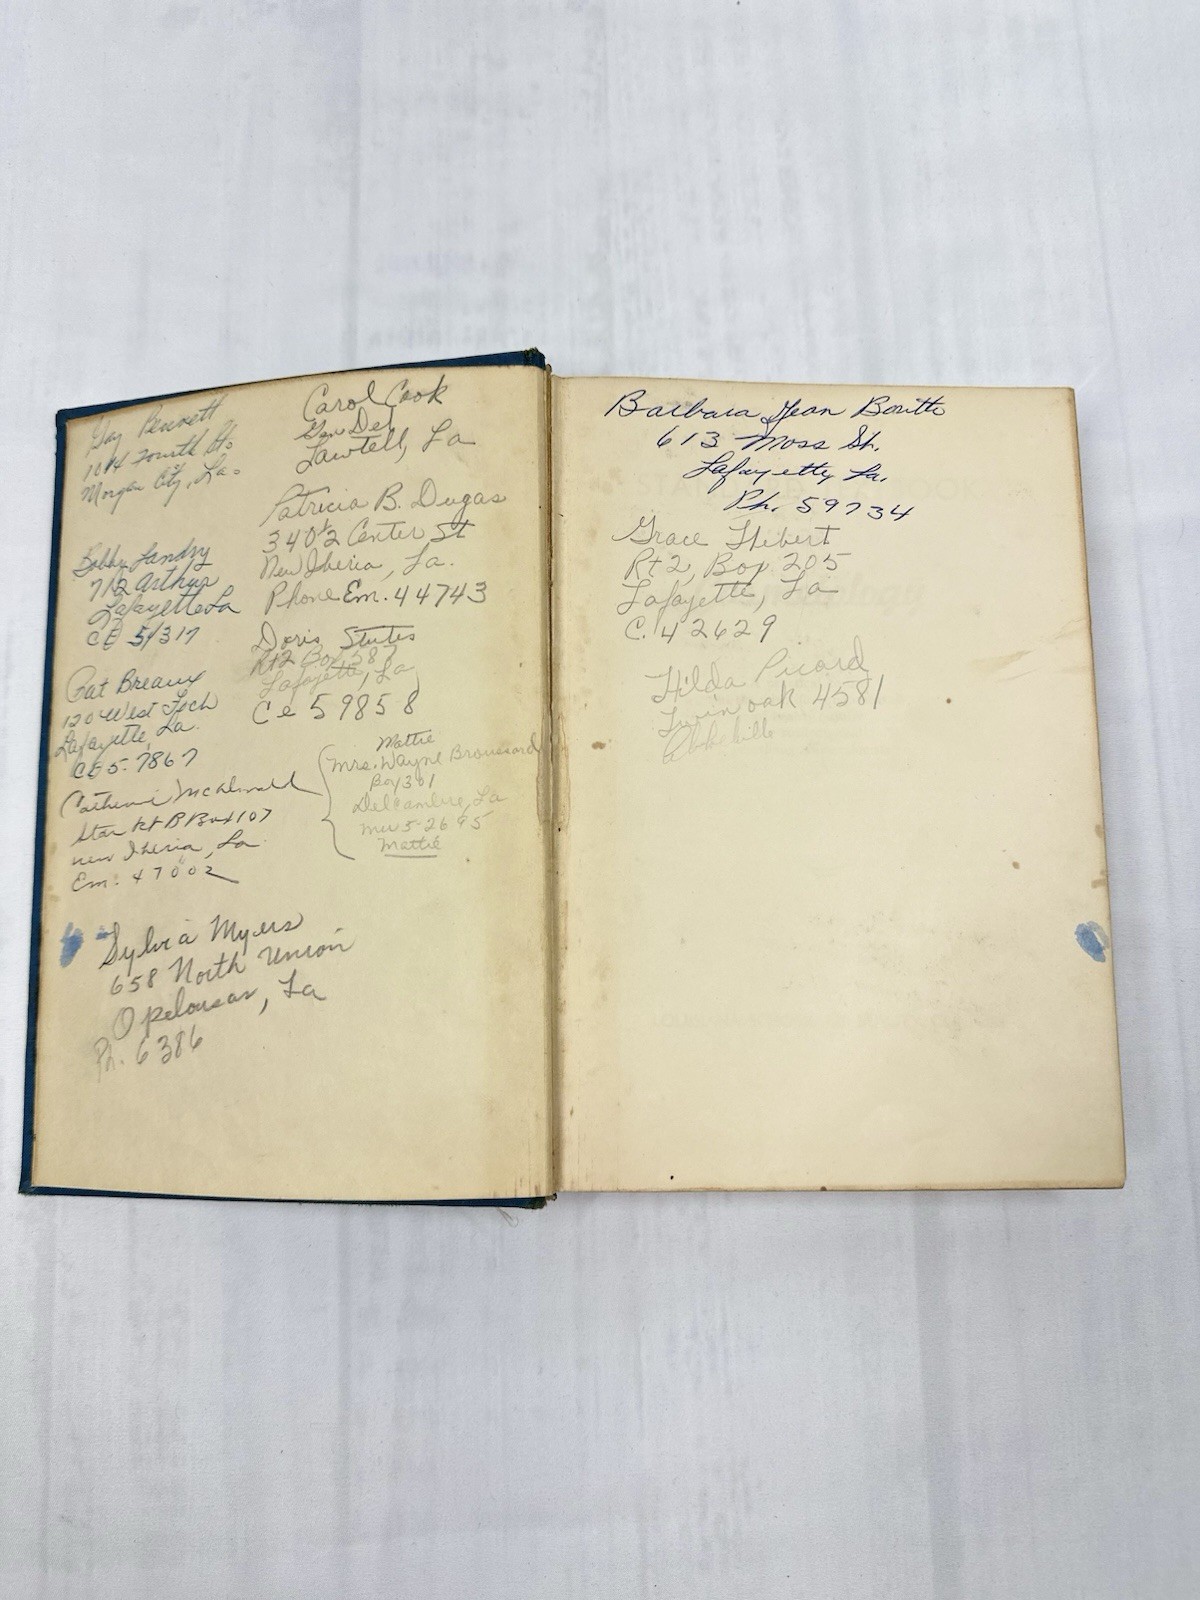 Gay Pennett
1014 Fourth St.
Morgan City, La.
Bobby Landry
712 Arthur
Lafayette La
CE 51317
Pat Breaux
120 West
Lafayette, La.
CE 5-7867
Catherine McDonald
Star Rt B Box 107
new Iberia, La.
Em. 47002
Sylvia Myers
658 North Union
Opelousas, La
Ph. 6386
Carol Cook
Gen Del
Lawtell, La
Patricia B. Dugas
340½ Center St
New Iberia, La.
Phone Em. 44743
Doris Stutes
Rt2 Box 587
Lafayette, La
Ce 59858
Mattie
Mrs. Wayne Broussard
Box 301
Delcambre, La
Mu 5-2695
Mattie
Barbara Jean
613 Moss St.
Lafayette, La.
Ph. 59734
Grace Hebert
Rt 2, Box 205
Lafayette, La
C. 42629
Hilda Picard
Twin oak 4581